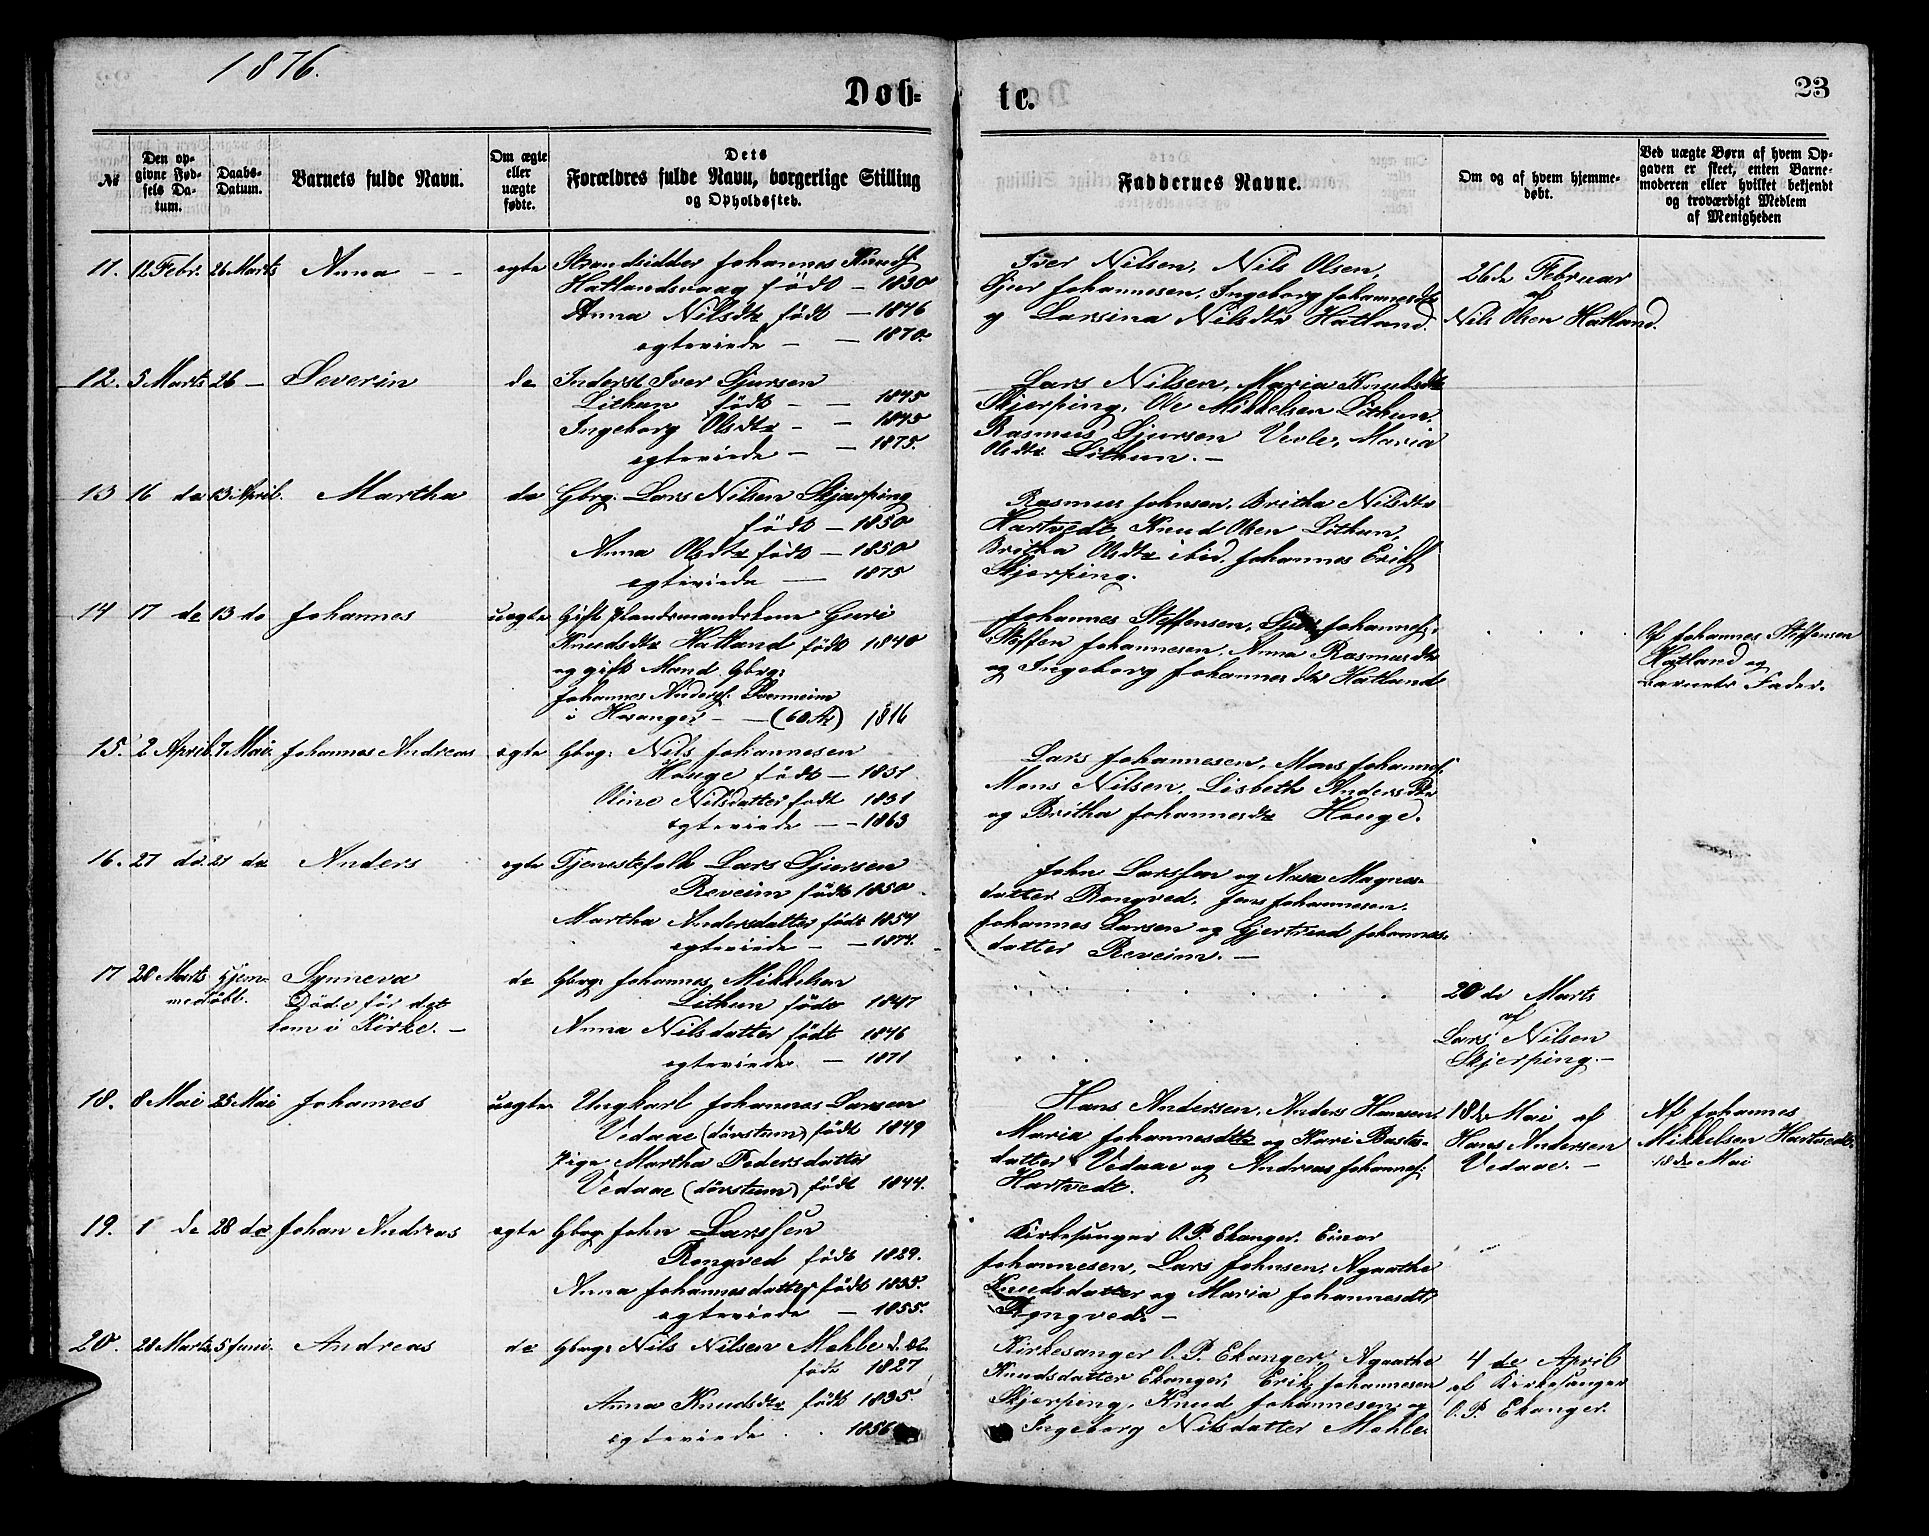 1876.
Døb-
te.
23
№
Den op-
givne Fød-
sels Da-
tum.
Daabs-
Datum.
Barnets fulde Navn.
Om ægte
eller
uægte
fødte.
Dets
Forældres fulde Navn, borgerlige Stilling
og Opholdssted.
Faddernes Navne.
Om og af hvem hjemme-
døbt.
Ved uægte Børn af hvem Op-
gaven er skeet, enten Barne-
moderen eller hvilket bekjendt
og troværdigt Medlem
af Menigheden
11. 12 Febr. 26 Marts Anna - - egte Strandsidder Johannes Knuds.
Hatlandsvaag födt - 1830
Anna Nilsdtr födt - 1846
egteviede - - 1870.
Iver Nilsen, Nils Olsen,
Sjur Johannesen, Ingeborg Johannesdtr
og Larsina Nilsdtr Hatland.
26de Februar
af
Nils Olsen Hatland.
12. 5 Marts 26 - Severin do Inderst Iver Sjursen
Lithun födt - - 1845
Ingeborg Olsdtr - - 1845
egteviede - - 1875.
Lars Nilsen, Maria Knudsdtr
Skjerping, Ole Mikkelsen Lithun,
Rasmus Sjursen Vevle, Maria
Olsdtr Lithun. -
13 16 do 13 April. Martha do Gbrg: Lars Nilsen Skjerping
födt - 1850
Anna Olsdtr födt - 1850
egteviede - 1875
Rasmus Johnsen, Britha Nilsdtr
Hartvedt, Knud Olsen Lithun,
Britha Olsdtr ibid, Johannes Eriks.
Skjerping.
14 17 do 13 do Johannes uegte Gift Plandsmandskone Guri
Knudsdtr Hatland födt 1840
og gift Mand Gbrg:
Johannes Anders.
i Hosanger - - (60 Ar) 1816
Johannes Steffensen, Sjur Johannes.
Steffen Johannesen, Anna Rasmusdtr
og Ingeborg Johannesdtr Hatland
Af Johannes Steffensen
Hatland og
Barnets Fader.
15. 2 April. 7 Mai. Johannes Andreas egte Gbrg: Nils Johannesen
Houge födt - 1831.
Oline Nilsdatter födt 1831
egteviede - - 1863
Lars Johannesen, Mons Johannes.
Mons Nilsen, Lisbeth Andersdtr
og Britha Johannesdtr Houge.
16. 27 do 21 do Anders egte Tjenestefolk Lars Sjursen
Reveim födt 1850
Martha Andersdatter födt 1854
egteviede - - 1874.
John Larssen og Magnes-
datter Rongved, Jens Johannesen,
Johannes Larsen og Gjertrud Johannes-
datter Reveim. -
17 20 Marts Hjem-
medöbt. Synneva
Döde för det
kom i Kirke. -
do Gbrg: Johannes Mikkelsen
Lithun födt 1847
Anna Nilsdatter födt 1846
egteviede - 1871
20 de Marts
af
Lars Nilsen
Skjerping. -
18. 8 Mai 25 Mai Johannes uegte Ungkarl Johannes Larsen
Vedaae födt 1849
Pige Martha Pedersdatter
Vedaae födt 1844.
Hans Andersen, Anders Hansen,
Maria Johannesdtr og Kari Bastes-
datter Vedaae og Andreas Johannes.
Hartvedt.
18de Mai af
Hans Andersen
Vedaae. -
Af Johannes
Mikkelsen Hartvedt
18 de Mai
19. 1 do 28 do Johan Andreas egte Gbrg John Larssen
Rongved födt 1829.
Anna Johannesdatter födt 1835.
egteviede - 1855.
Kirkesanger O. P. Ekanger, Einar
Johannesen, Lars Johnsen, Agaathe
Knudsdatter og Maria Johannesdtr
Rongved. -
20. 28 Marts. 5 Juni. Andreas do Gbrg: Nils Nilsen Mehle
födt 1827
Anna Knudsdtr födt 1835.
egteviede . . 1856
Kirkesanger O. P. Ekanger, Agaathe
Knudsdatter Ekanger, Erik Johannesen
Skjerping, Knud Johannesen og
Ingeborg Nilsdatter Mehle.
4 de April
af Kirkesanger
O. P. Ekanger.